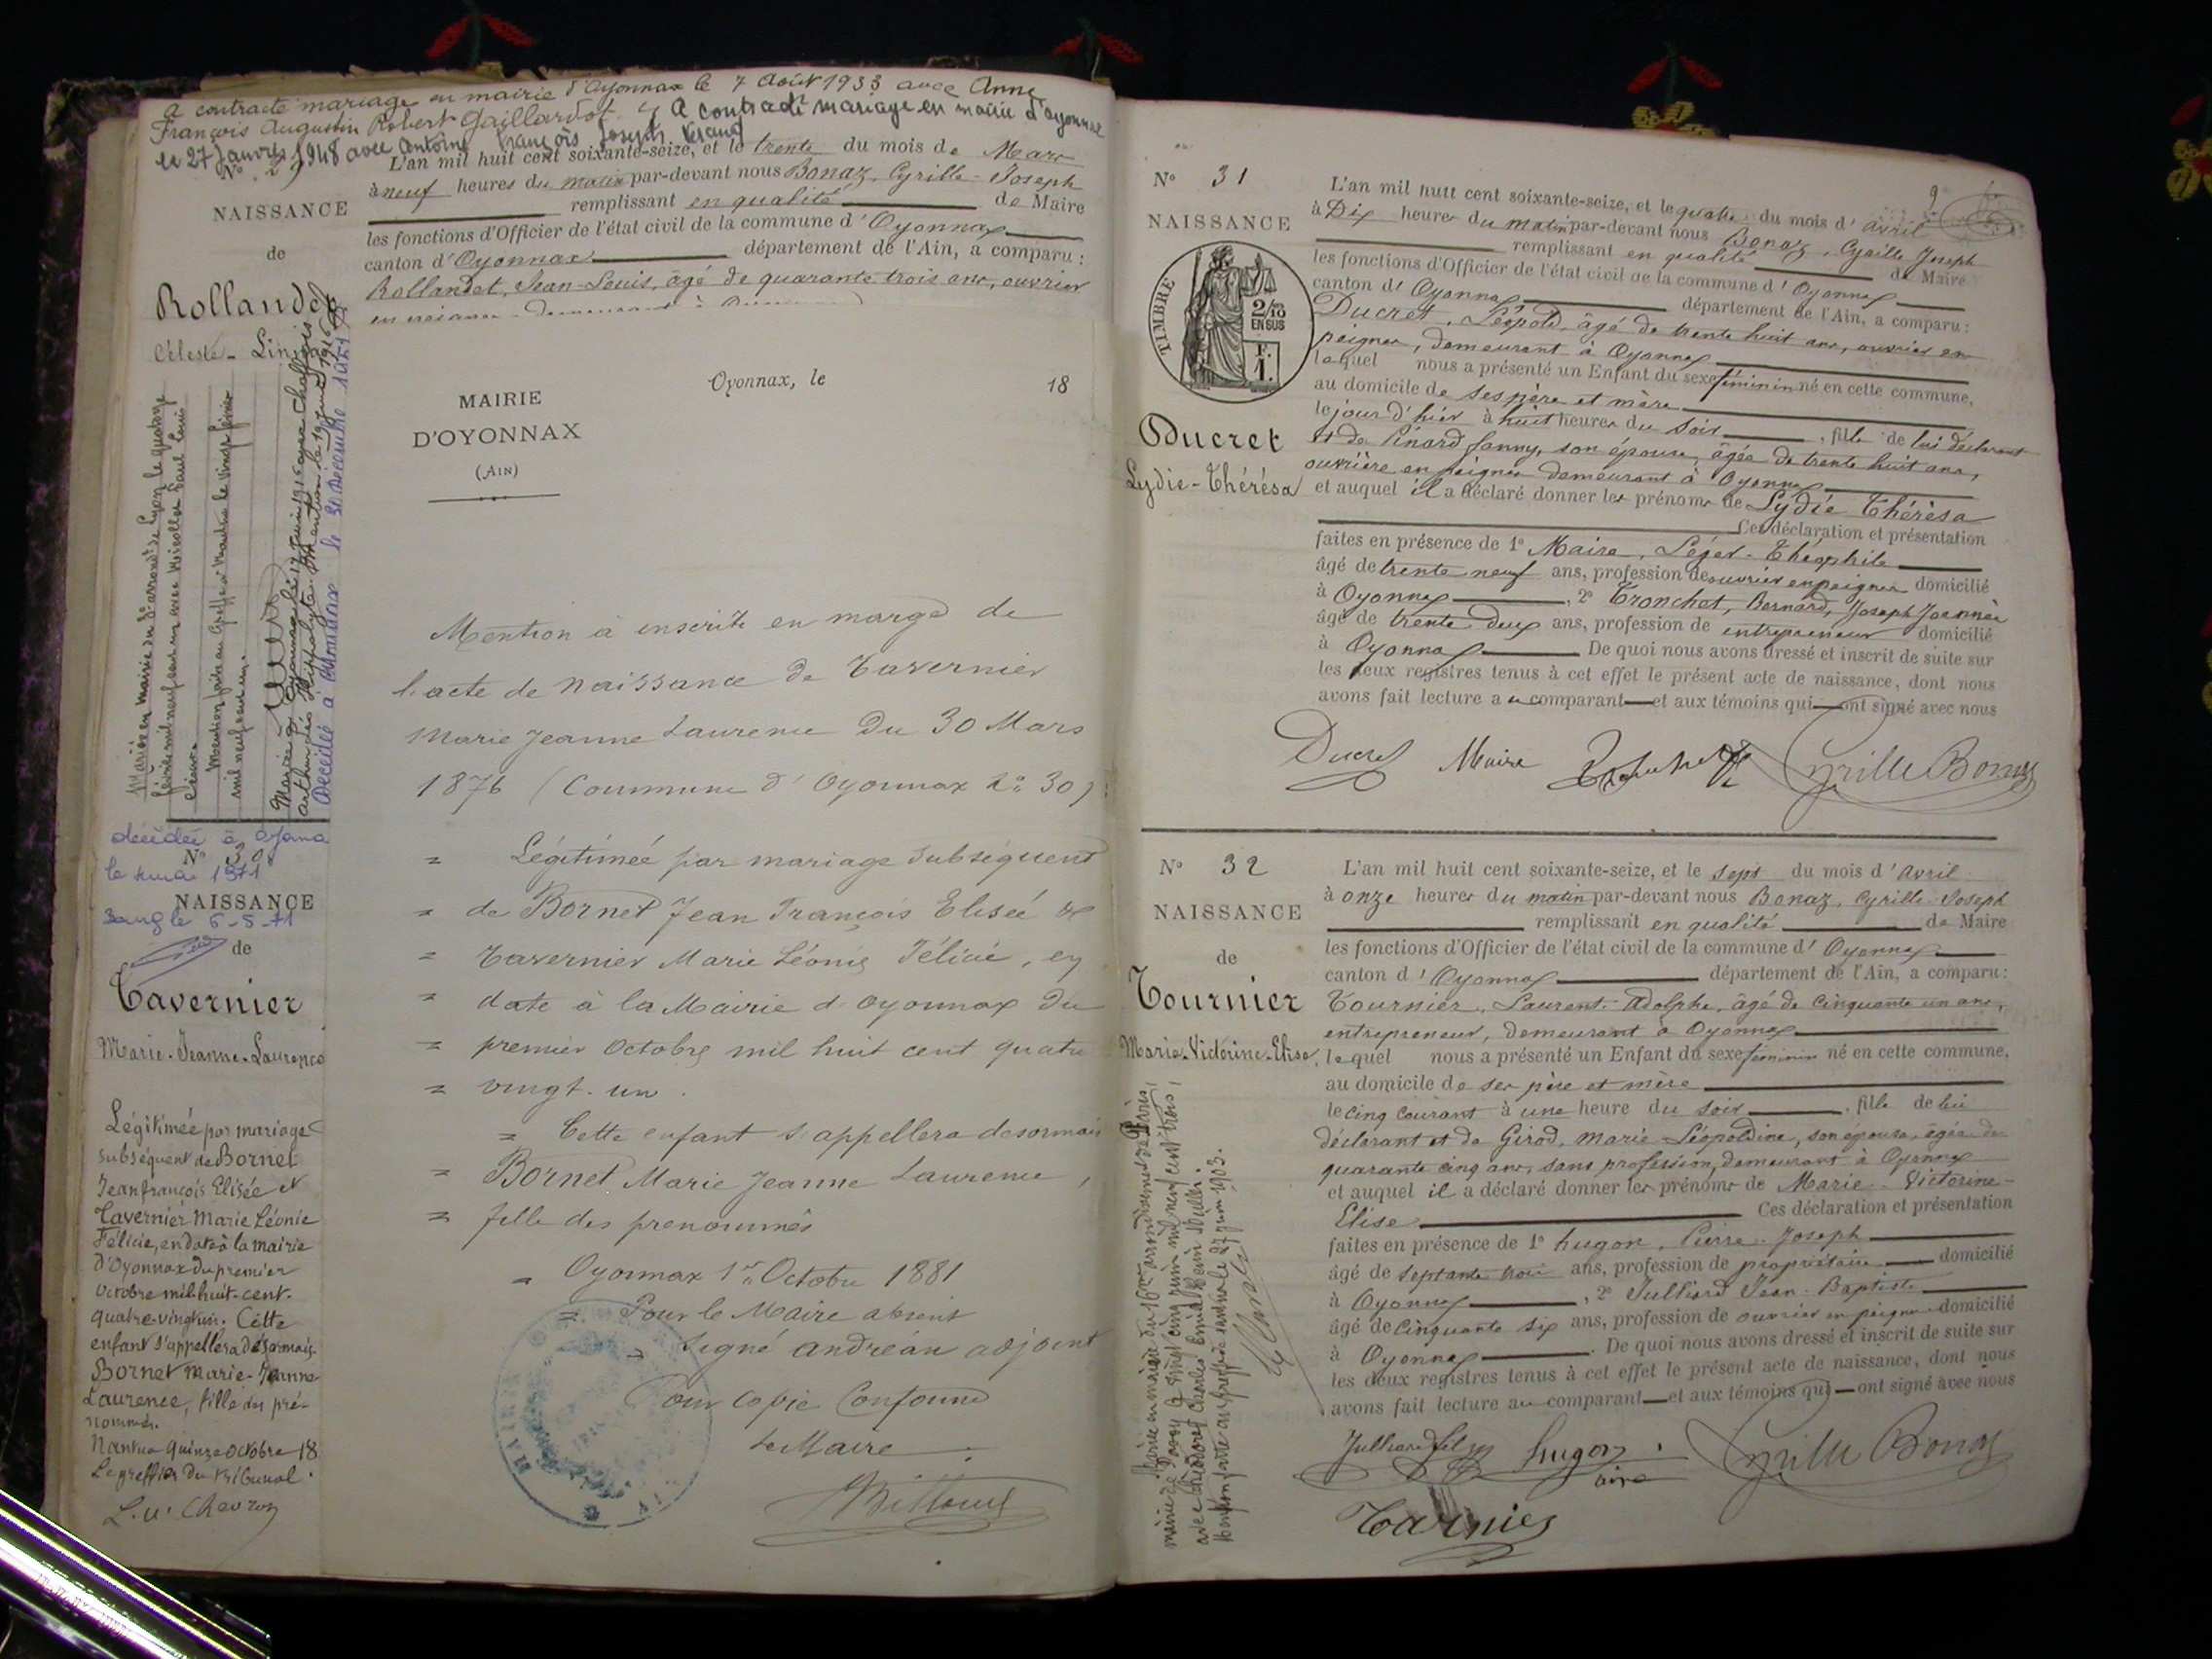 a contracté mariage en mairie d'Oyonnax le 7 Août 1933 avec Anne
François Augustin Robert Gaillardot
a contracté mariage en mairie d'Oyonnax
le 27 Janvier 1948 avec Antoine François Joseph
N° 29
NAISSANCE
de
Rollandet
Céleste - Lina
L'an mil huit cent soixante-seize, et le trente du mois de Mars
à neuf heures du matin par-devant nous Bonaz, Cyrille-Joseph
remplissant en qualité de Maire
les fonctions d'Officier de l'état civil de la commune d'Oyonnax
canton d'Oyonnax département de l'Ain, a comparu :
Rollandet, Jean-Louis, âgé de quarante trois ans, ouvrier
Mariée en mairie du 3e arrondt de Lyon le quatorze
février mil neuf cent avec Nicollet Paul Louis
Mention faite au Greffe de Nantua le vingt février
mil neuf cent
Mariée à Oyonnax le 17 Juin 1916 avec
Arthur Hippolyte Mention le 19 Juin 1916
Décédée à le 31 Décembre
décédée à Oyonnax
N° 30
le 1971
NAISSANCE
le 6-5-71
de
Tavernier
Marie-Jeanne-Laurence
Légitimée par mariage
subséquent de Bornet
Jean françois Elisée et
Tavernier Marie Léonie
Félicie, en date à la mairie
d'Oyonnax du premier
octobre mil-huit-cent-
quatre-vingt-un. Cette
enfant s'appellera désormais
Bornet Marie-Jeanne-
Laurence, fille des pré-
nommés.
Nantua quinze octobre 18
Le greffier du tribunal.
Chevron
MAIRIE
D'OYONNAX
(AIN)
Oyonnax, le 18
Mention à inscrite en marge de
l'acte de naissance de Tavernier
Marie Jeanne Laurence du 30 Mars
1876 (Commune d'Oyonnax n° 30) :
= Légitimée par mariage subséquent
= de Bornet Jean François Elisée &
= Tavernier Marie Léonie Félicie, en
= date à la Mairie d'Oyonnax du
= premier Octobre mil huit cent quatre
= vingt-un.
= Cette enfant s'appellera desormais
= Bornet Marie Jeanne Laurence,
= fille des prenommés
= Oyonnax 1er Octobre 1881
= Pour le Maire absent
= Signé Andréan adjoint
Pour Copie Conforme
Le Maire
N° 31
NAISSANCE
TIMBRE
2/10
EN SUS
F.
1.
Ducret
Lydie-Thérésa
9
L'an mil huit cent soixante-seize, et le quatre du mois d'avril
à Dix heures du matin par-devant nous Bonaz, Cyrille Joseph
remplissant en qualité de Maire
les fonctions d'Officier de l'état civil de la commune d'Oyonnax
canton d'Oyonnax département de l'Ain, a comparu :
Ducret, Léopold, âgé de trente huit ans, ouvrier en
peignes, demeurant à Oyonnax
lequel nous a présenté un Enfant du sexe féminin né en cette commune,
au domicile de ses père et mère
le jour d'hier à huit heures du soir, fille de lui déclarant
et de Pinard fanny, son épouse, âgée de trente huit ans,
ouvrière en peignes demeurant à Oyonnax
et auquel il a déclaré donner les prénoms de Lydie Thérèsa
Ces déclaration et présentation
faites en présence de 1° Maire, Léger-Théophile
âgé de trente neuf ans, profession de ouvrier en peignes domicilié
à Oyonnax, 2° Tronchet, Bernard, Joseph Joannès
âgé de trente deux ans, profession de entrepreneur domicilié
à Oyonnax De quoi nous avons dressé et inscrit de suite sur
les deux registres tenus à cet effet le présent acte de naissance, dont nous
avons fait lecture au comparant et aux témoins qui ont signé avec nous
Ducret Maire Cyrille Bonaz
N° 32
NAISSANCE
de
Tournier
Marie-Victorine-Elise
Mariée en mairie du 16me arrondissement de Paris,
mairie de Passy le vingt cinq juin mil neuf cent trois,
avec Théodore Charles Emile Henri Muller.
Mention faite au greffe de Nantua le 27 juin 1903.
L'an mil huit cent soixante-seize, et le sept du mois d'avril
à onze heures du matin par-devant nous Bonaz, Cyrille-Joseph
remplissant en qualité de Maire
les fonctions d'Officier de l'état civil de la commune d'Oyonnax
canton d'Oyonnax département de l'Ain, a comparu :
Tournier, Laurent-Adolphe, âgé de cinquante un ans,
entrepreneur, demeurant à Oyonnax
lequel nous a présenté un Enfant du sexe féminin né en cette commune,
au domicile de ses père et mère
le cinq courant à une heure du soir, fille de lui
déclarant et de Girod, Marie-Léopoldine, son épouse, âgée de
quarante cinq ans, sans profession, demeurant à Oyonnax
et auquel il a déclaré donner les prénoms de Marie-Victorine-
Elise Ces déclaration et présentation
faites en présence de 1° hugon, Pierre-Joseph
âgé de septante trois ans, profession de propriétaire domicilié
à Oyonnax, 2° Julliard Jean-Baptiste
âgé de cinquante six ans, profession de ouvrier en peignes domicilié
à Oyonnax. De quoi nous avons dressé et inscrit de suite sur
les deux registres tenus à cet effet le présent acte de naissance, dont nous
avons fait lecture au comparant et aux témoins qui ont signé avec nous
Julliard hugon Cyrille Bonaz
aîné
Tournier